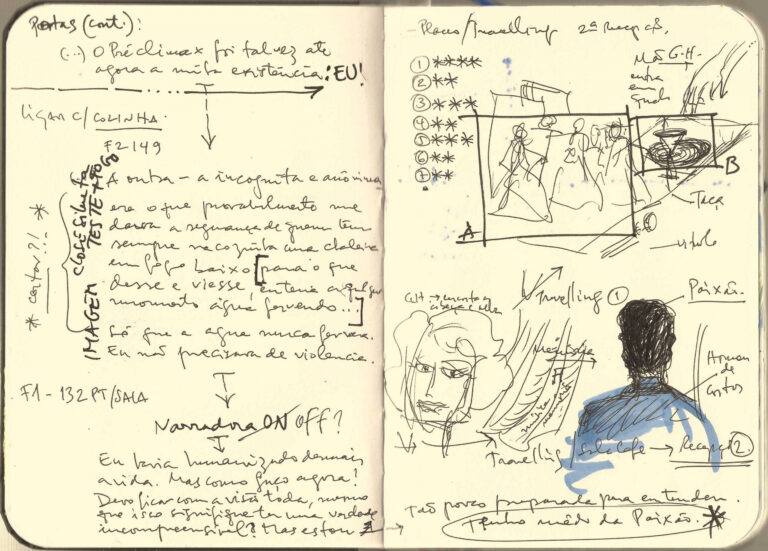 Portas (cont.):
(...) O Préclimax foi talvez até
agora a minha existência: EU!
Ligar c/ COZINHA.
F2 149
A outra - a incógnita e anônima
era o que provavelmente me
dava a segurança de quem tem
sempre na cozinha uma chaleira
em fogo baixo [para o que
desse e viesse, eu teria a qualquer
momento água fervendo...]
Só que a água nunca fervera.
Eu não precisava de violência.
* cortar?!.. *
IMAGEM
F1 - 132 PT/SALA
Narradora ON OFF?
Eu havia humanizado demais
a vida. Mas como faço agora?
Devo ficar com a visão toda, mesmo
que isso signifique ter uma verdade
incompreensível? Mas estou
Planos/Travelling 2ª Recepção.
① ****
② **
③ ***
④ **
⑤ ***
⑥ **
⑦ **
Mão G.H.
entra
em
quadro
A
B
Taça
Travelling ①
Paixão.
Homem
de
costas
Travelling / → Recepção ②.
Tão pouco preparada para entender.
Tenho mêdo da Paixão. *